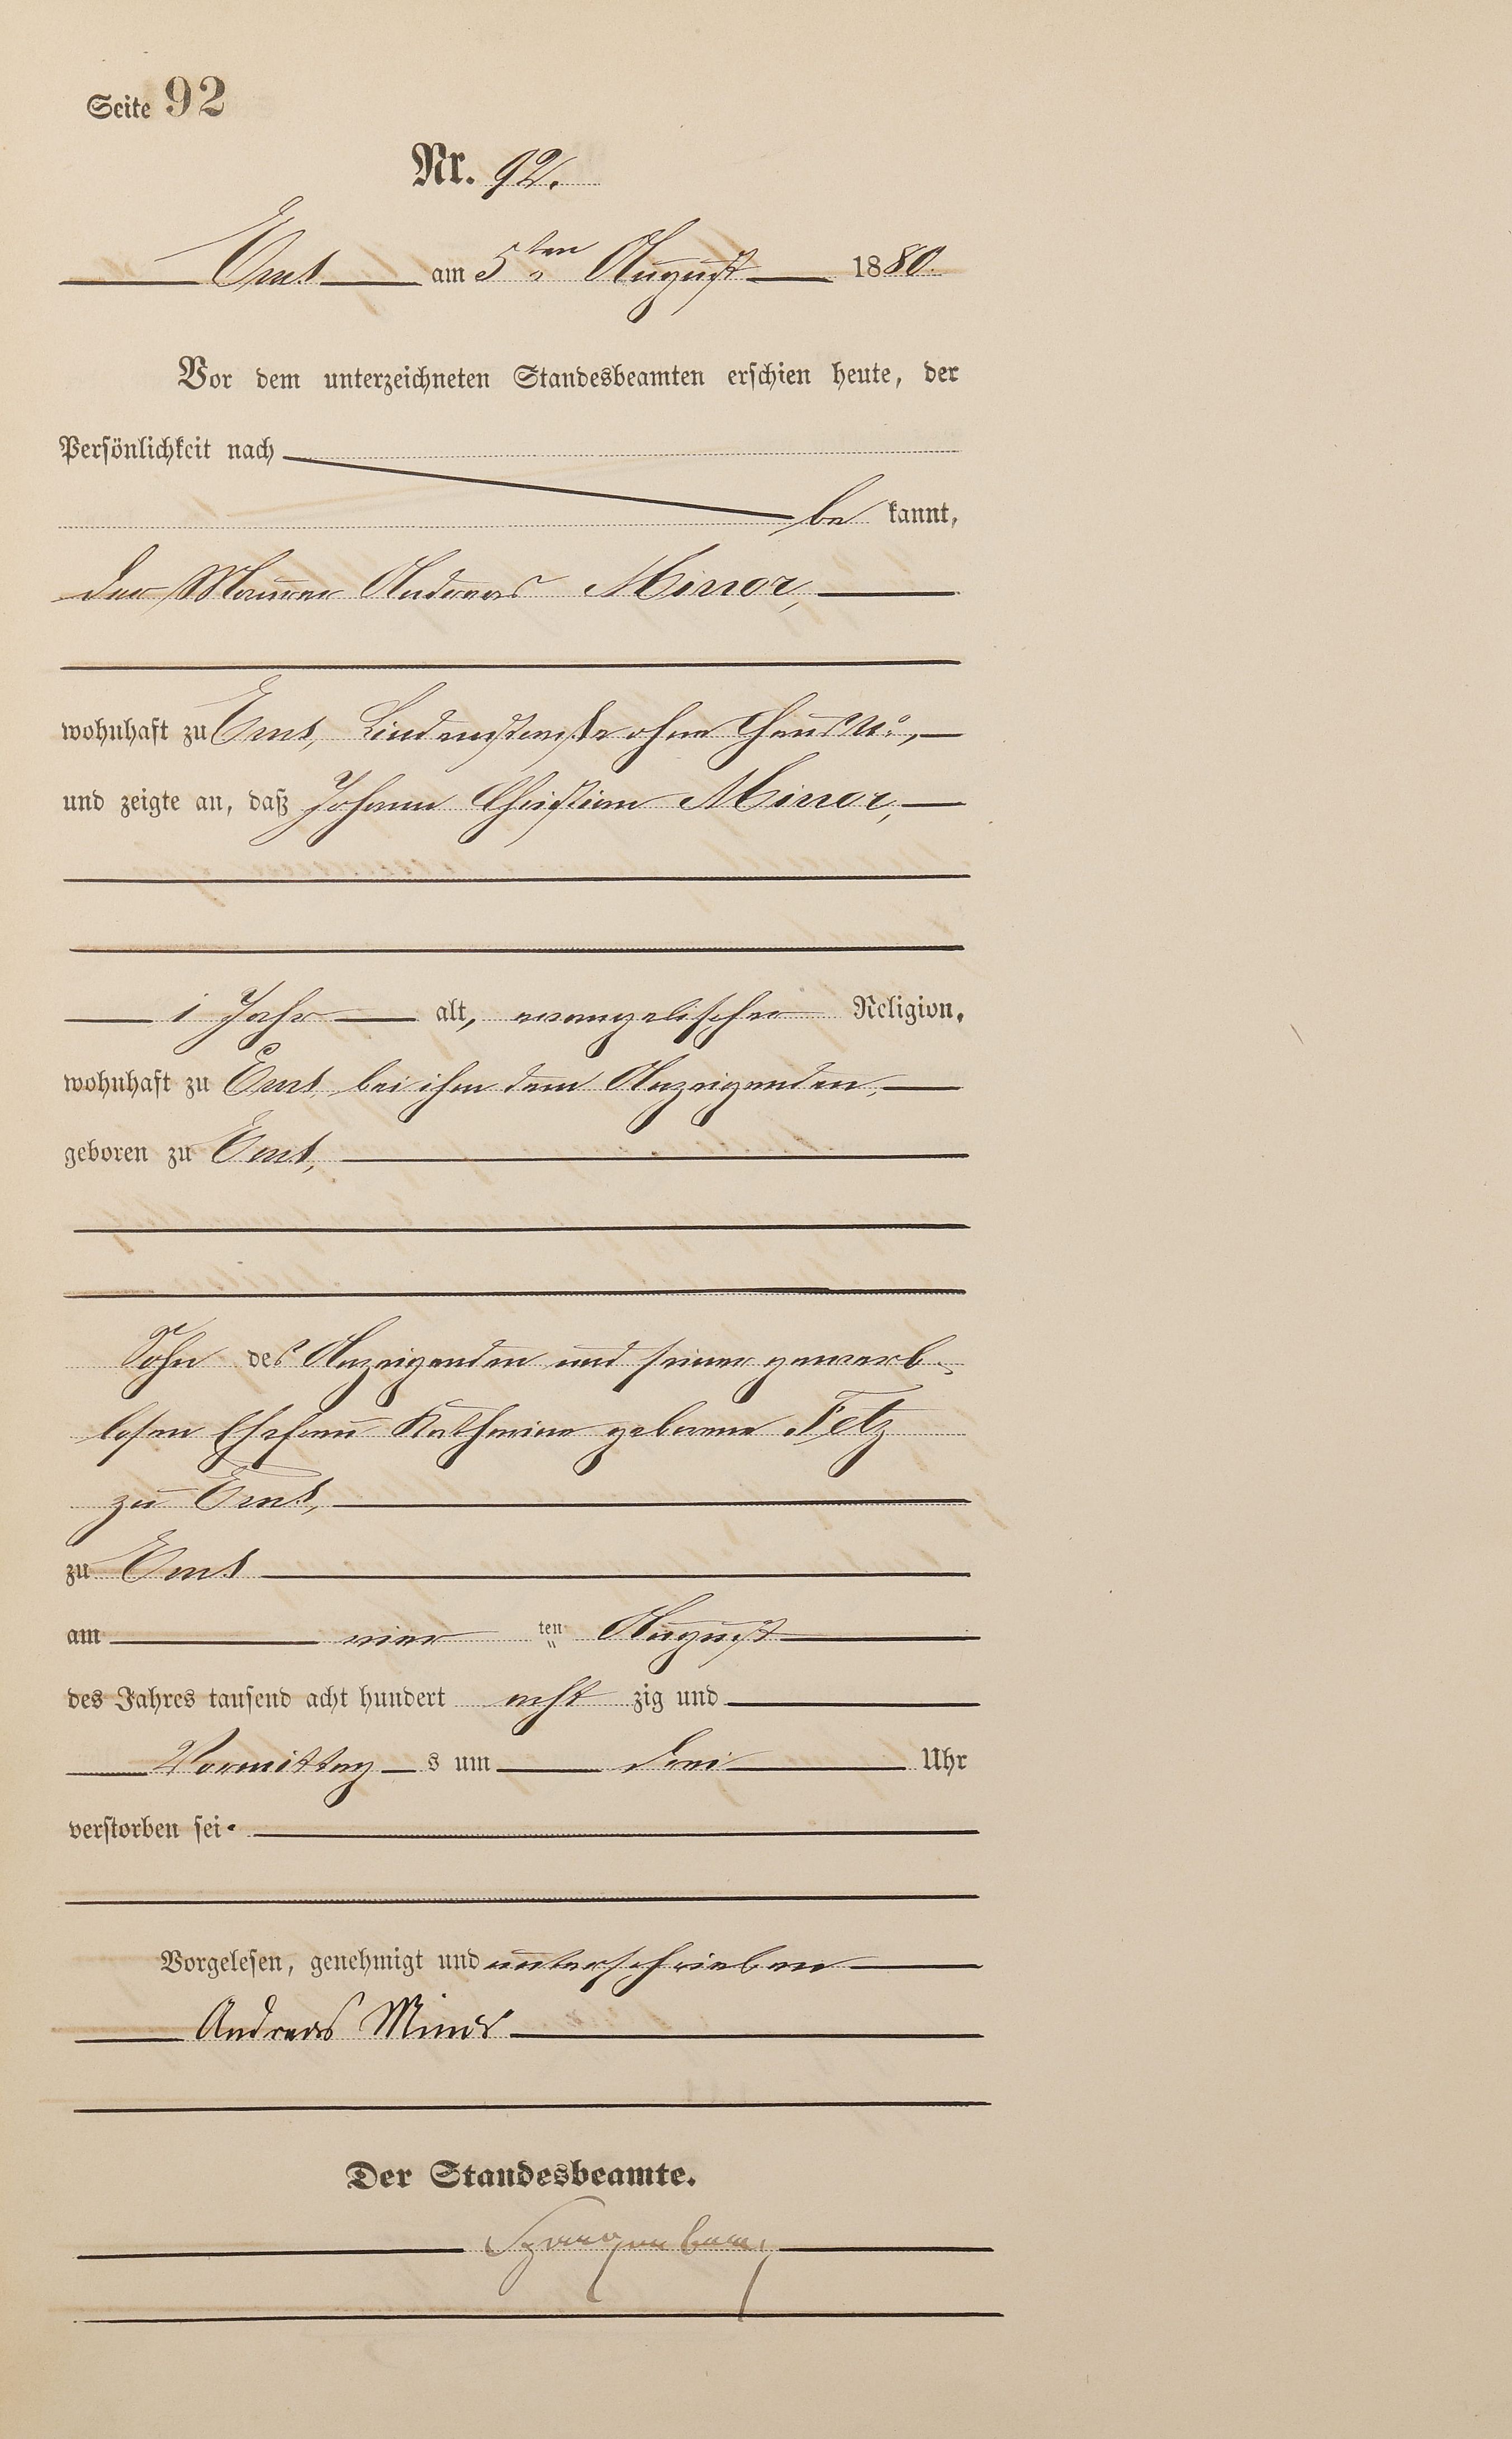 Seite 92
Nr. 92.
Ems am 5ten August 1880.
Vor dem unterzeichneten Standesbeamten erschien heute, der
Persönlichkeit nach
be kannt,
der Maurer Andreas Minor,
wohnhaft zu Ems, Lindenstraße ohne Haus No.,
und zeigte an, daß Johann Christian Minor,
1 Jahr alt, evangelischer Religion,
wohnhaft zu Ems, bei ihm dem Anzeigenden,
geboren zu Ems,
Sohn des Anzeigenden und seiner gewerb-
losen Ehefrau Katharina geborene Fetz
zu Ems,
zu Ems
am vier ten August
des Jahres tausend acht hundert acht zig und
Vormittag s um drei Uhr
verstorben sei.
Vorgelesen, genehmigt und unterschrieben
Andreas Minor
Der Standesbeamte.
Spangenberg